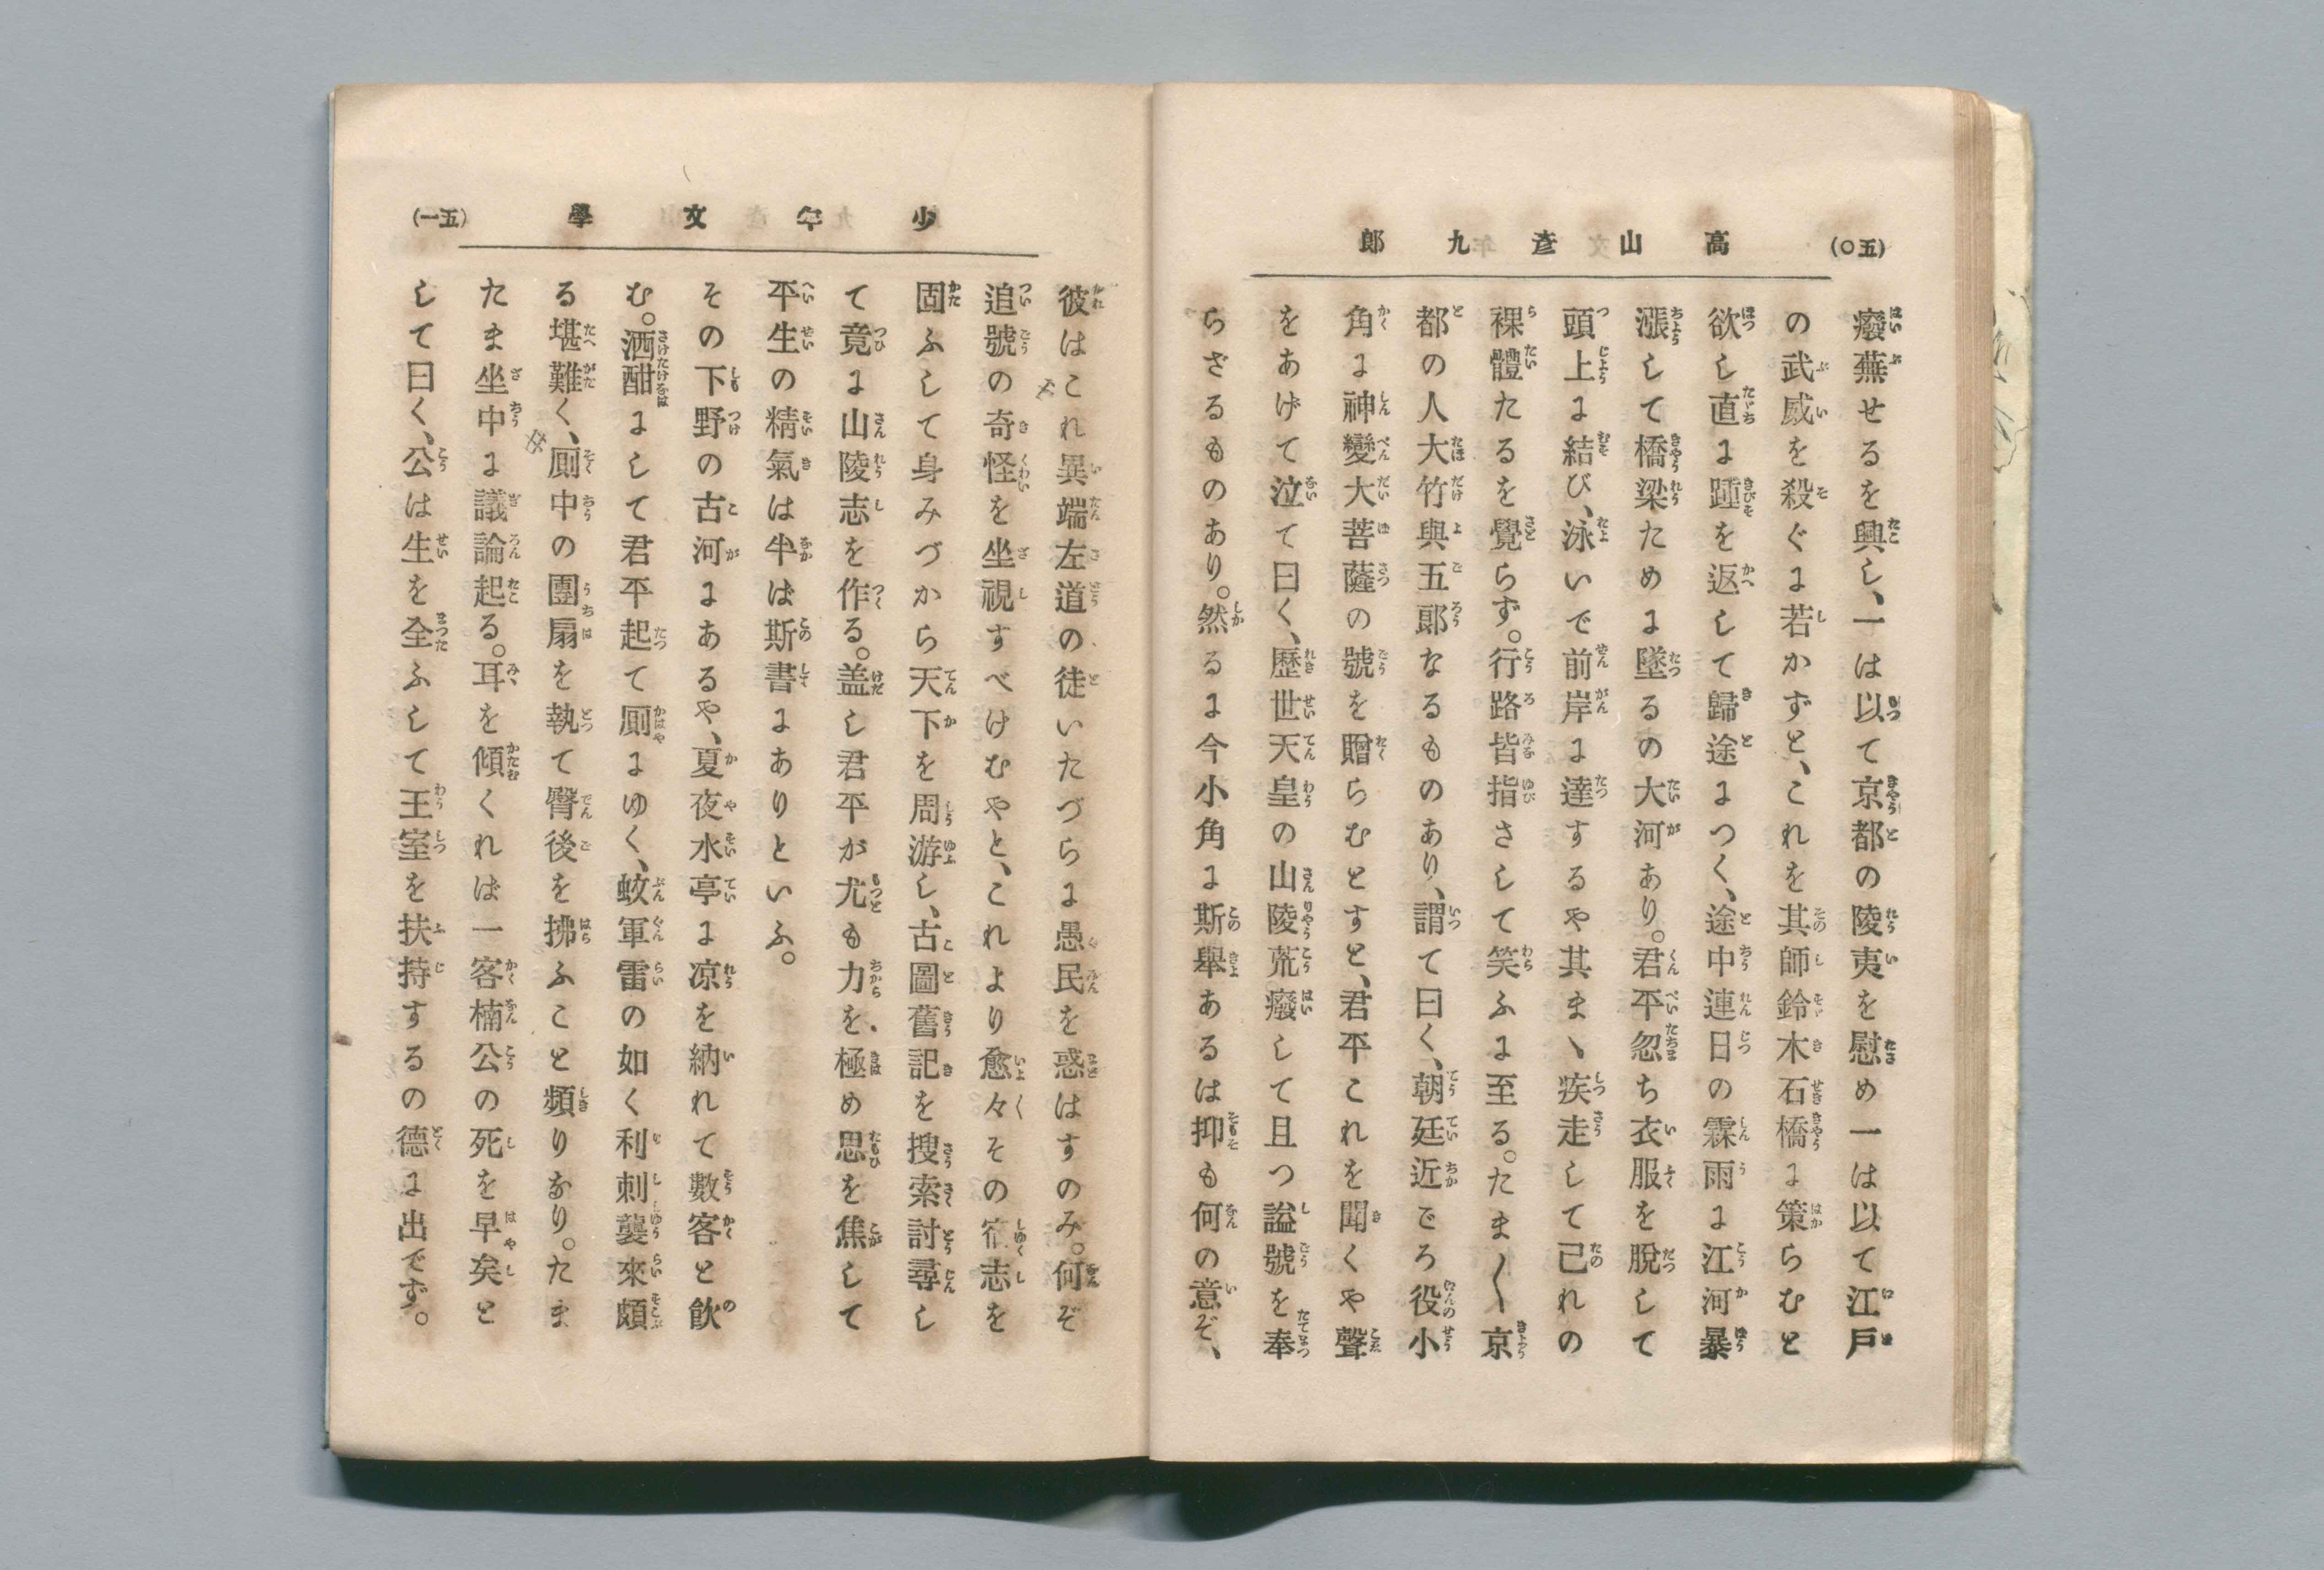 (五〇)
高山彥九郎
癈蕪せるを興し、一は以て京都の陵夷を慰め一は以て江戸
の武威を殺ぐに若かずと、これを其師鈴木石橋に策らむと
欲し直に踵を返して歸途につく、途中連日の霖雨に江河暴
漲して橋梁ために墜るの大河あり。君平忽ち衣服を脫して
頭上に結び、泳いで前岸に達するや其まゝ疾走して已れの
裸體たるを覺らず。行路皆指さして笑ふに至る。たま〱京
都の人大竹與五郎なるものあり、謂て曰く、朝廷近ごろ役小
角に神變大菩薩の號を贈らむとすと、君平これを聞くや聲
をあげて泣て曰く、歷世天皇の山陵荒癈して且つ謚號を奉
らざるものあり。然るに今小角に斯擧あるは抑も何の意ぞ、
少年文學
(五一)
彼はこれ異端左道の徒いたづらに愚民を惑はすのみ。何ぞ
追號の奇怪を坐視すべけむやと、これより愈々その宿志を
固ふして身みづから天下を周游し、古圖舊記を搜索討尋し
て竟に山陵志を作る。盖し君平が尤も力を極め思を焦して
平生の精氣は半ば斯書にありといふ。
その下野の古河にあるや、夏夜水亭に凉を納れて數客と飮
む。酒酣にして君平起て厠にゆく、蚊軍雷の如く利刺襲來頗
る堪難く、厠中の團扇を執て臀後を拂ふこと頻りなり。たま
たま坐中に議論起る。耳を傾くれば一客楠公の死を早矣と
して曰く、公は生を全ふして王室を扶持するの德に出でず。